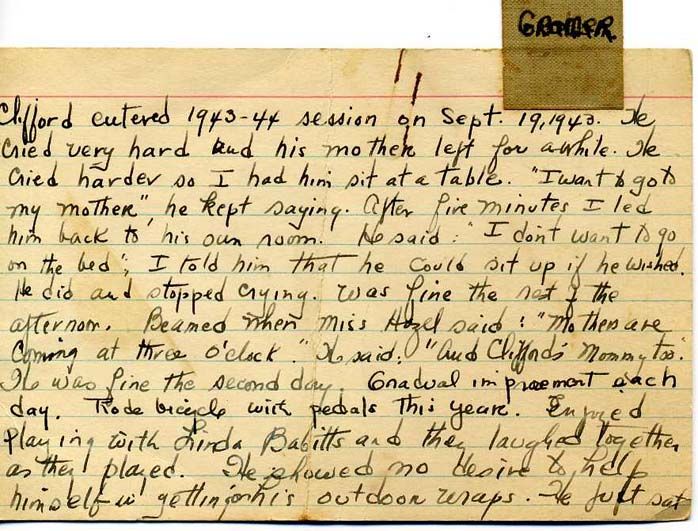 GROMER.
Clifford entered 1943-44 session on Sept. 19, 1943. He
cried very hard and his mother left for awhile. He
cried harder so I had him sit at a table. "I want to go to
my mother", he kept saying. After five minutes I led
him back to his sun room. He said: "I don't want to go
on the bed"; I told him that he could sit up if he wished.
He did and stopped crying. Was fine the rest of the
afternoon. Beamed when Miss Hazel said: "Mothers are
coming at three o'clock" He said: "And Clifford's Mommy too".
He was fine the second day. Gradual improvement each
day. Rode bicycle with pedals this year. Enjoyed
playing with Linda Babitts and they laughed together
as they played. He showed no desire to help
himself in getting on his outdoor wraps. He just sat